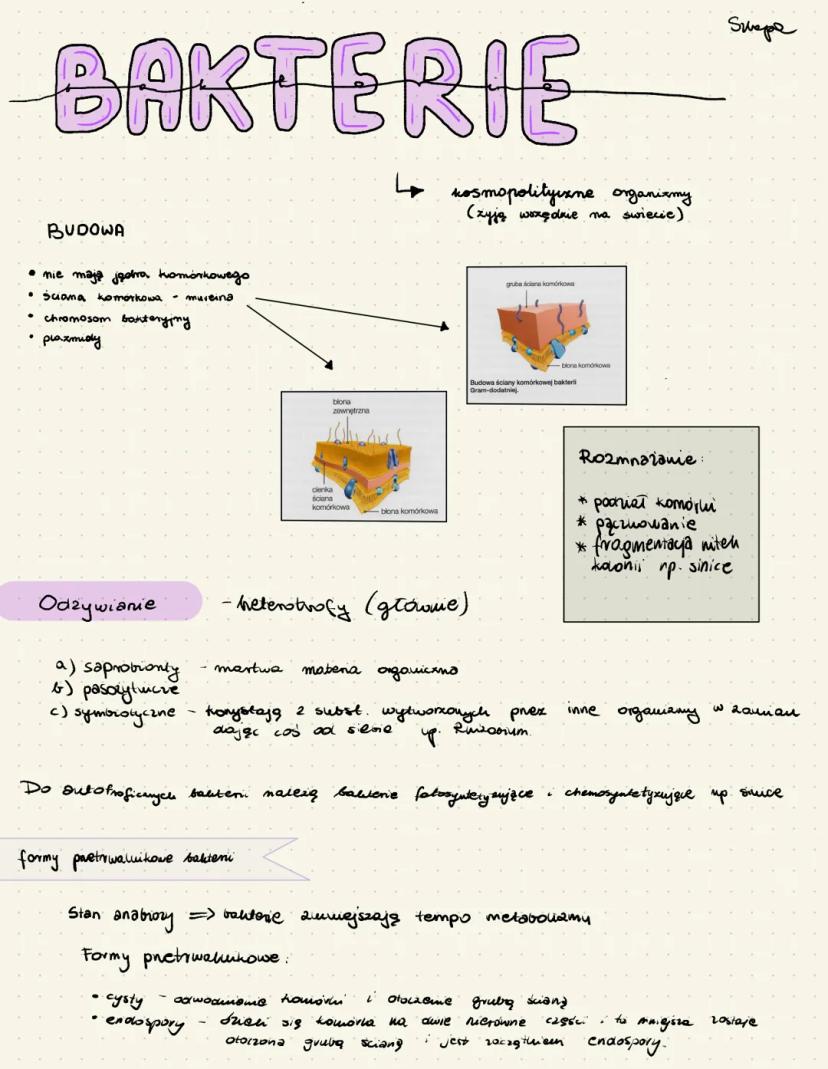 BAKTERIE
bakterie
kosmopolityczne organizmy
(żyją wszędzie na świecie)
BUDOWA
• nie mają jądra komórkowego
• ściana komórkowa - mureina
• chromosom bakteryjny
• plazmidy
gruba ściana komórkowa
błona komórkowa
Budowa ściany komórkowej bakterii
Gram-dodatniej.
błona
zewnętrzna
cienka
ściana
komórkowa
błona komórkowa
Rozmnażanie:
* podział komórki
* pączkowanie
* fragmentacja nitek
kolonii np. sinice
Odżywianie - heterotrofy (głównie)
a) saprobionty - martwa materia organiczna
b) pasożytnicze
c) symbiotyczne - korzystają z subst. wytworzonych przez inne organizmy w zamian
dając coś od siebie np. Rhizobium.
Do autotroficznych bakterii należą bakterie fotosyntetyzujące i chemosyntetyzujące np sinice
formy przetrwalnikowe bakterii
Stan anabiozy => bakterie zmniejszają tempo metabolizmu
Formy przetrwalnikowe:
• cysty - odwodnienie komórki i otoczenie grubą ścianą
• endospory - dzieli się komórka na dwie nierówne części i ta mniejsza zostaje
otoczona grubą ścianą i jest zaczątkiem endospory.